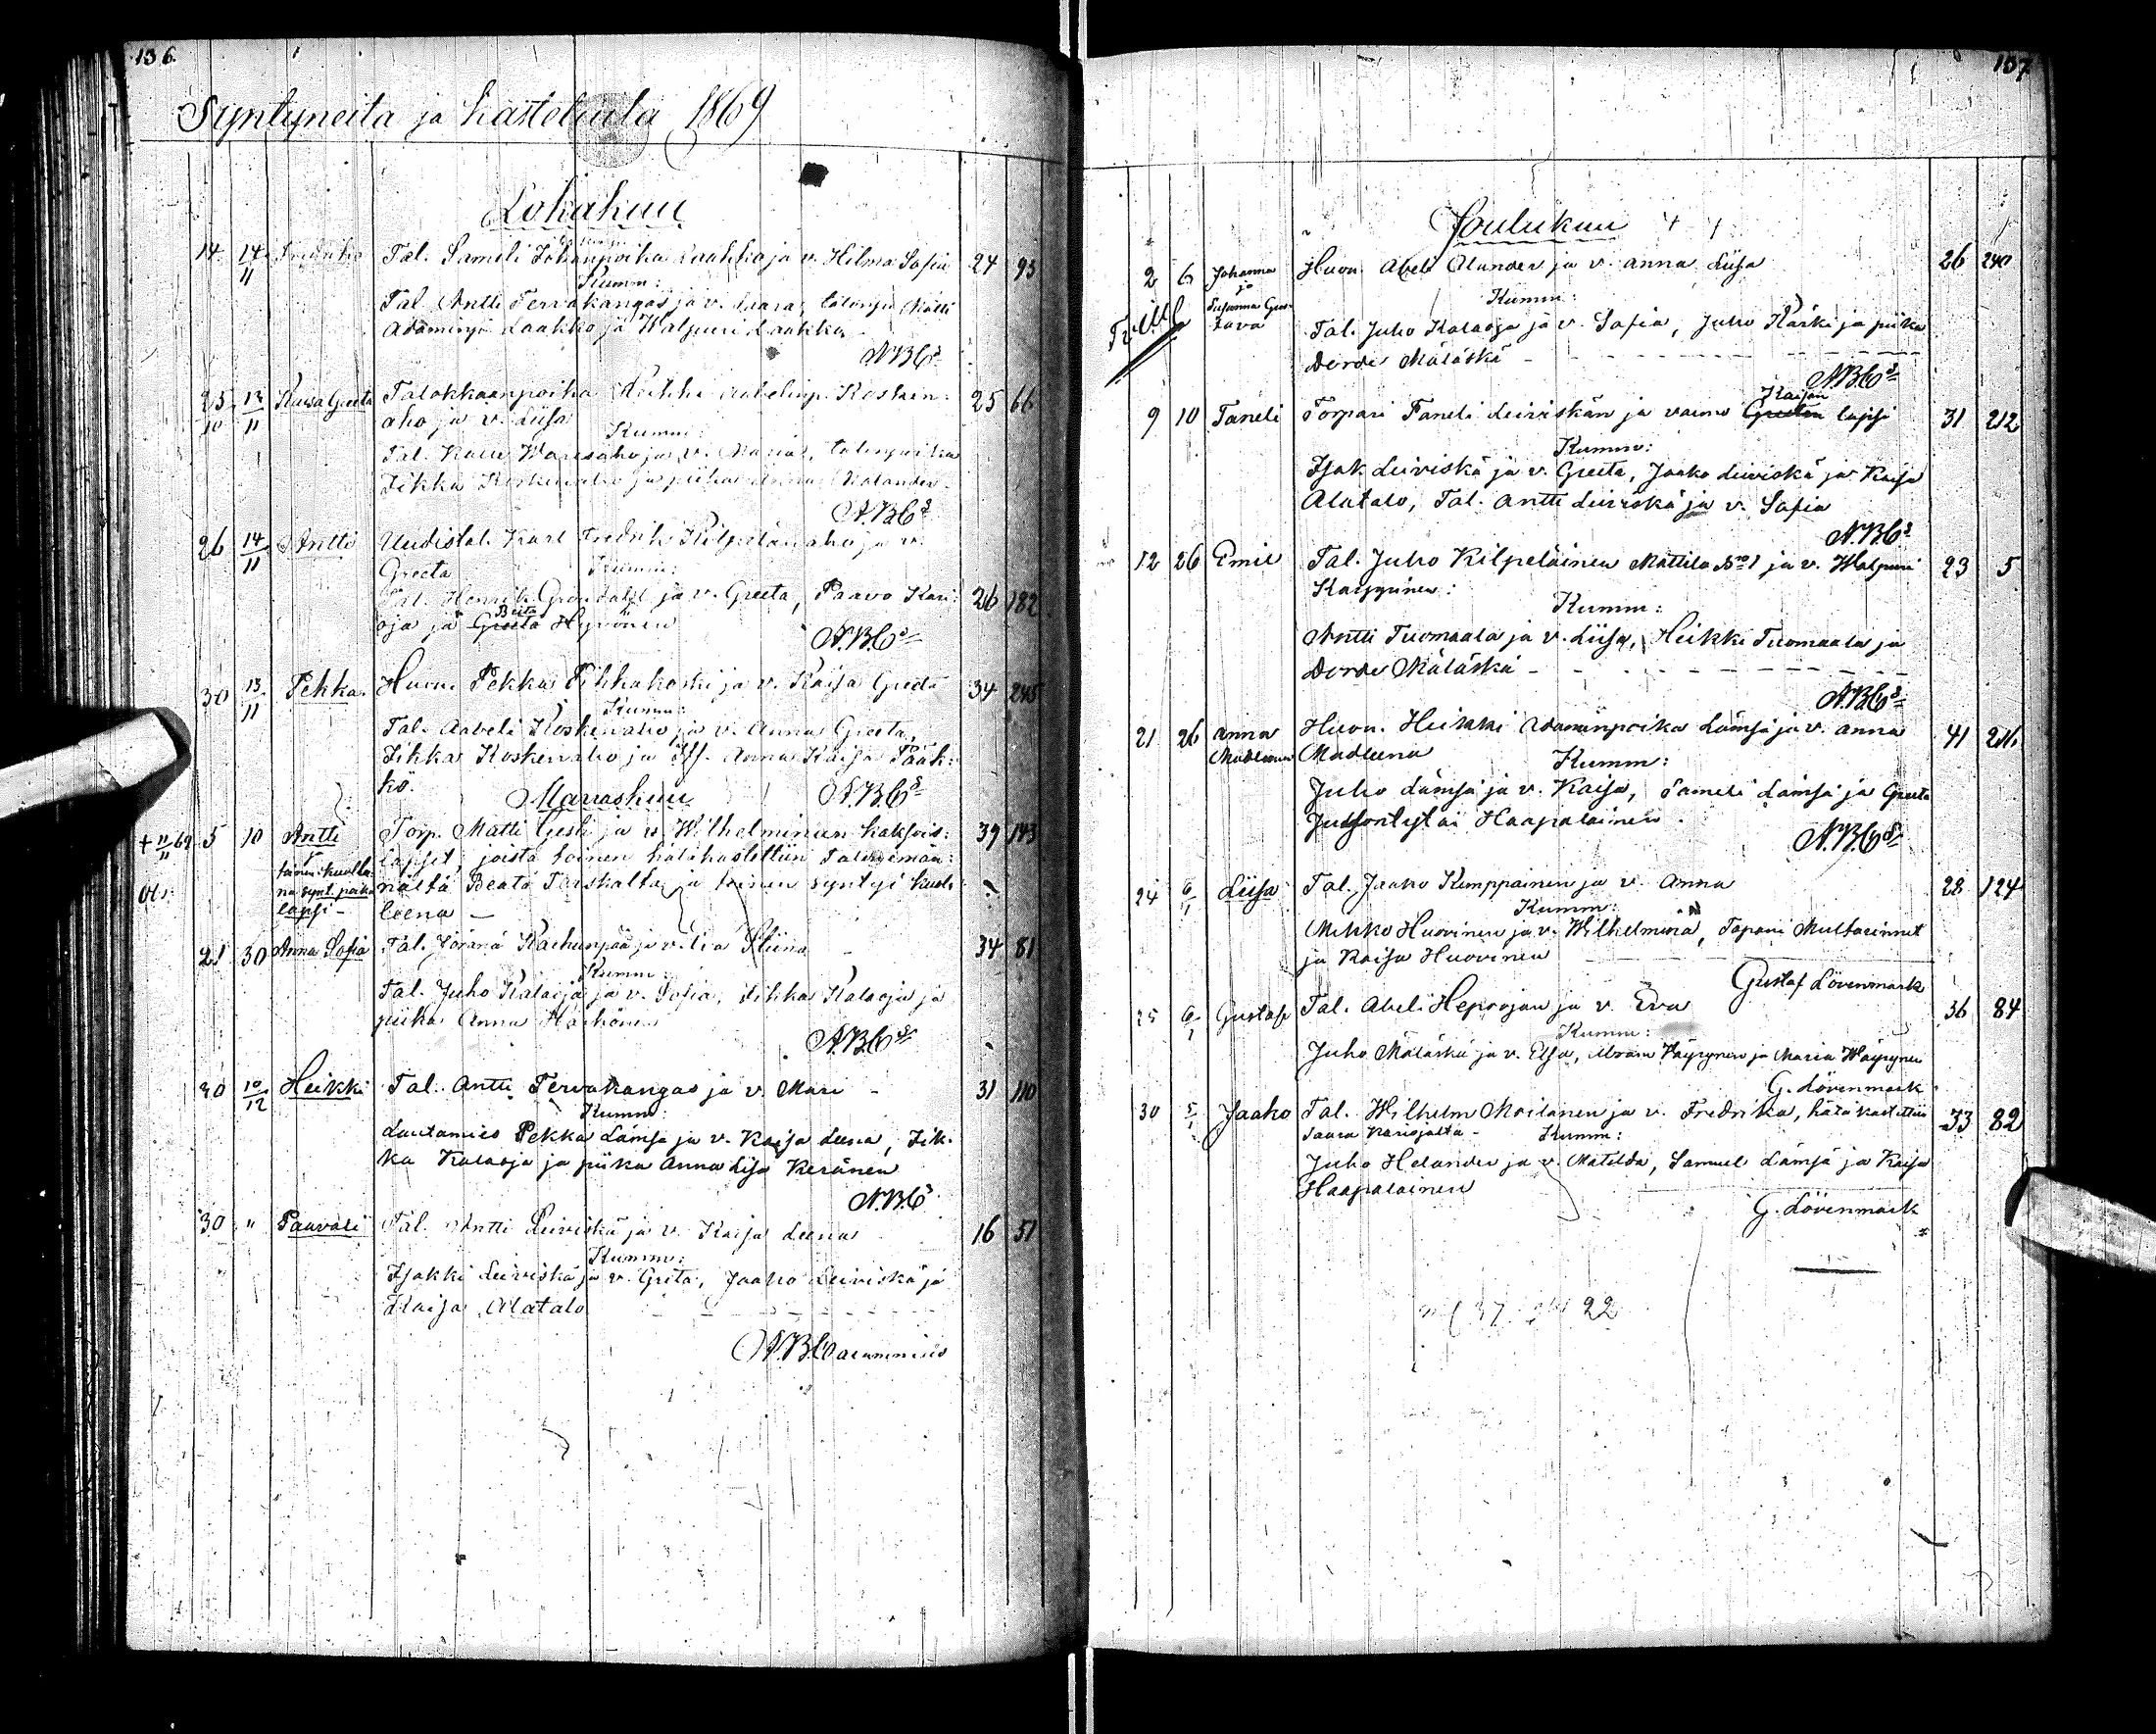 136.
Syntyneitä ja kastetuita 1869
Lokakuu
14 14/11 Fredrika Tal. Sameli Johanpoika Laakko ja v. Hilma Sofia 24 93
Kumm:
Tal. Antti Tervakangas ja v. Saara, talonp. Matti
Adaminp. Laakko ja Walpuri Laakko
N.B.C.s
25/10 13/11 Kaisa Greeta Talokkaanpoika Heikki Aabelinp. Kosken- 25 66
aho ja v. Liisa
Kumm:
Tal. Kalle ja v. Maria, talonpoika
Sikka Koskenaho ja piika Anna Kalander
N.B.C.s
26 14/11 Antti Uudistal. Karl Fredrik Kilpelänaho ja v.
Greeta Kumm:
Tal. Henrik Gröndahl ja v. Greeta, Paavo Kari- 26 182
Beata
oja ja Greeta Hyvönen
N.B.C.s
30 13/11 Pekka Huon. Pekka Pihkakoski ja v. Kaisa Greeta 34 248
Kumm:
Tal. Aabeli Koskenaho ja v. Anna Greeta,
Sikka Koskenaho ja Its. Anna Kaisa Pääk-
kö. N.B.C.s
Marraskuu
+ 11/11 69 5 10 Antti Torp. Matti ja v. Wilhelminan kaksois- 39 143
toinen kuolla- lapset, joista toinen hätäkastettiin Talonemän-
na synt. poika nältä Beata Turskalta ja toinen syntyi kuol-
lapsi - leena -
21 30 Anna Sofia Tal. Jöränä Karhunpää ja v. Eva Stiina - 34 81
Kumm:
Tal. Juho Kalaoja ja v. Sofia, Sikka Kalaoja ja
piika Anna Härkönen
N.B.C.s
30 10/12 Heikki Tal. Antti Tervakangas ja v. Mari - 31 110
Kumm:
Lautamies Pekka Lämsä ja v. Kaisa Leena, Sik-
ka Kalaoja ja piika Anna Liisa Keränen
N.B.C.s
30 " Paavali Tal. Antti Leiviskä ja v. Kaisa Leena 16 51
Kumm:
Isakki Leiviskä ja v. Greta, Jaako Leiviskä ja
Kaisa Alatalo
137
Joulukuu
2 6 Johanna Huon. Abel Alander ja v. Anna Liisa 26 240
ja
Susanna Gus- Kumm:
tava Tal. Juho Kalaoja ja v. Sofia, Juho Kärki ja piika
Dorde Määtäskä -
N.B.C.s
Kaisan
9 10 Taneli Torpari Taneli Leiviskän ja vaimo Greetan lapsi 31 212
Kumm:
Isak Leiviskä ja v. Greeta, Jaako Leiviskä ja Kaisa
Alatalo, Tal. Antti Leiviskä ja v. Sofia
N.B.C.s
12 26 Emil Tal. Juho Kilpeläinen Mattila No 1 ja v. Walpuri 23 5
Karppinen:
Kumm:
Antti Tuomaala ja v. Liisa, Heikki Tuomaala ja
Dorde Mäläskä -
N.B.C.s
21 26 Anna Huon. Heikki Adaminpoika Lämsä ja v. Anna 41 216
Madleena Madleena
Kumm:
Juho Lämsä ja v. Kaisa, Sameli Lämsä ja Greeta
Haapalainen.
N.B.C.s
24 6/1 Liisa Tal. Jaako Kemppainen ja v. Anna 28 124
Kumm:
Mikko Huovinen ja v. Wilhelmina, Tapani Multarinnet
ja Kaisa Huovinen
Gustaf Lövenmark
25 6/1 Gustaf Tal. Abeli Hepoojan ja v. Eva 36 84
Kumm:
Juho Mäläskä ja v. Elsa, Abram Väyrynen ja Maria Wäyrynen
G. Lövenmark
30 5/1 Jaako Tal. Wilhelm Moilanen ja v. Fredrika, hätäkastettiin 33 82
Saara Kariojalta - Kumm:
Juho Helander ja v. Matilda, Samuel Lämsä ja Kaisa
Haapalainen
G. Lövenmark
22